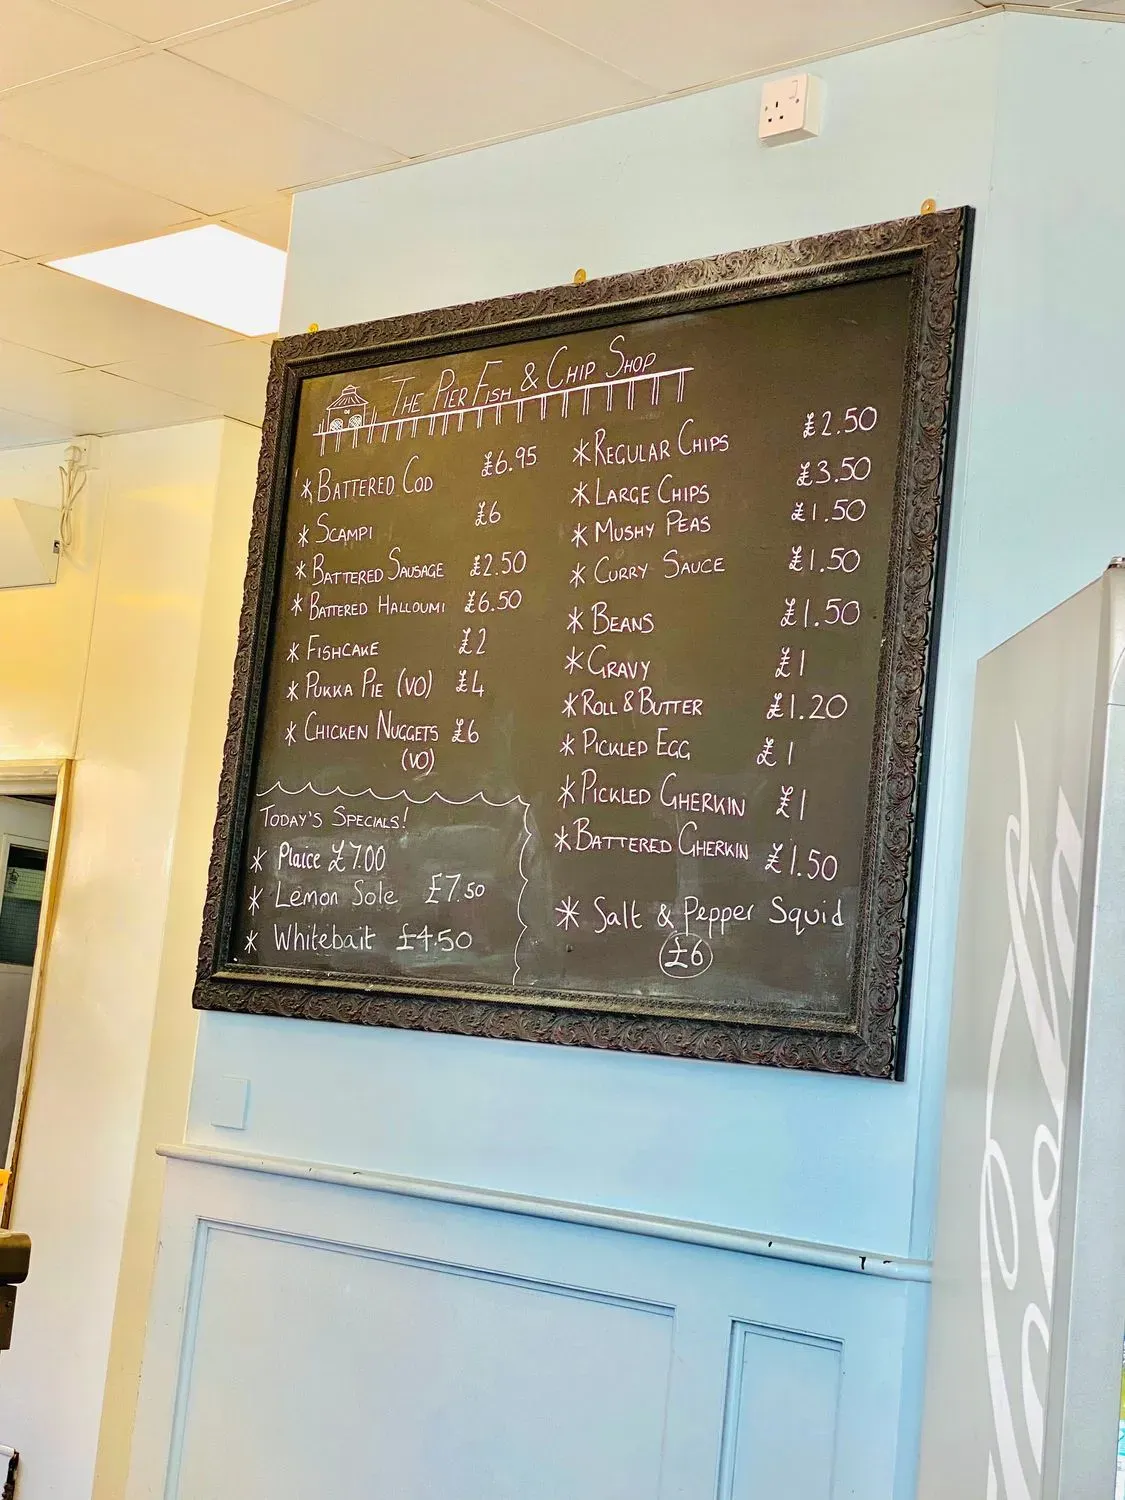 THE PIER FISH & CHIP SHOP
* BATTERED COD £6.95
* SCAMPI £6
* BATTERED SAUSAGE £2.50
* BATTERED HALLOUMI £6.50
* FISHCAKE £2
* PUKKA PIE (VO) £4
* CHICKEN NUGGETS £6
(VO)
TODAY'S SPECIALS!
* Plaice £7.00
* Lemon Sole £7.50
* Whitebait £4.50
* REGULAR CHIPS £2.50
* LARGE CHIPS £3.50
* MUSHY PEAS £1.50
* CURRY SAUCE £1.50
* BEANS £1.50
* GRAVY £1
* ROLL & BUTTER £1.20
* PICKLED EGG £1
* PICKLED GHERKIN £1
* BATTERED GHERKIN £1.50
* Salt & Pepper Squid
£6